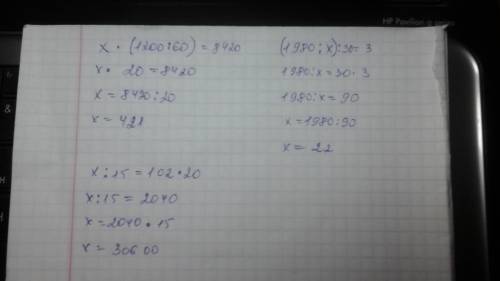 HP Pavilion
x · (1200:60) = 8420
x · 20 = 8420
x = 8420:20
x = 421
(1980:x):30=3
1980:x=30·3
1980:x=90
x=1980:90
x= 22
x:15=102·20
x:15=2040
x=2040·15
x= 30600